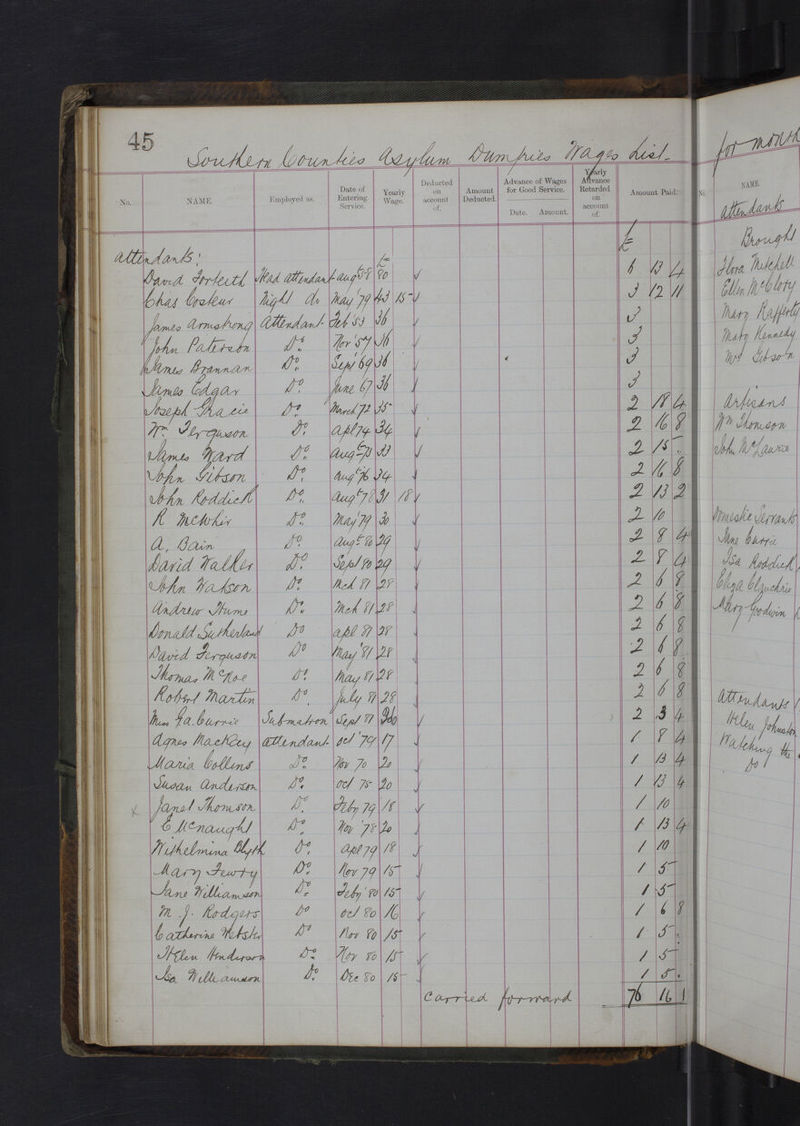 45
Southern Counties Asylum Dumfries Wages List-
No. NAME. Employed as. Date of Entering Service. Yearly Wage. Deducted on account of. Amount Deducted. Advance of Wages for Good Service. Date. Amount. Yearly Advance Retarded on account of. Amount Paid.
attendants: £ £
David Forteith Head attendant augt 58 80 6 13 4
Chas Costeur Night do May 79 43 15 3 12 11
James Armstrong Attendant Feb 53 36 3
John Paterson Do Nov '57 36 3
James Brannan Do Sept 69 36 3
James Edgar Do June 67 36 3
Joseph Gracie Do March 72 35 2 18 4
Wm Ferguson Do Apl 74 34 2 16 8
James Ward Do Augt 73 33 2 15
John Gibson Do Augt 76 34 2 16 8
John Roddick Do Augt 78 31 18 2 13 2
R McWhir Do May 79 30 2 10
A. Bain Do Augt 80 29 2 8 4
David Walker Do Sept 80 29 2 8 4
John Watson Do Mch 81 28 2 6 8
Andrew Hume Do Mch 81 28 2 6 8
Donald Sutherland Do apl 81 28 2 6 8
David Ferguson Do May 81 28 2 6 8
Thomas McRoe Do May 81 28 2 6 8
Robert Martin Do July 81 28 2 6 8
Miss Currie Submatron Sept 81 2 3 4
Agnes Mackay attendant oct '79 17 1 8 4
Maria Collins Do Nov 70 20 1 13 4
Susan Anderson Do oct 75 20 1 13 4
x Janet Thomson Do Feby 79 18 1 10
E McNaught Do Nov '78 20 1 13 4
Wilhelmina Blyth Do apl 79 18 1 10
Mary Do Nov 79 15 1 5
Jane Williamson Do Feby '80 15 1 5
M. J. Rodgers Do oct 80 16 1 6 8
Catherine Webster Do Nov 80 15 1 5
Helen Henderson Do Nov 80 15 1 5
Isa Williamson Do Dec 80 15 1 5
Carried forward 76 16 1
for month
No. NAME.
attendants
Brought
Flora Mitchell
Ellen McClory
Mary Rafferty
Mary Kennedy
Mrs Gibson
Artisans
Wm Thomson
John McLaurie
Domestic Servants
Jane Currie
Isa Roddick
Eliza
Mary Goodwin
Attendants
Helen Johnston
Watching the
Do